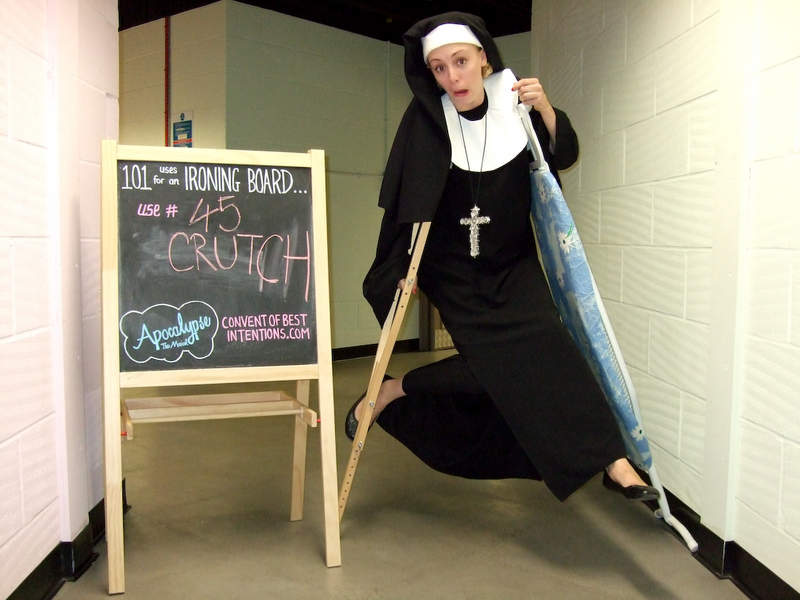 101 uses for an IRONING BOARD...
use # 45
CRUTCH
Apocalypse
The Musical
CONVENT OF BEST
INTENTIONS.COM